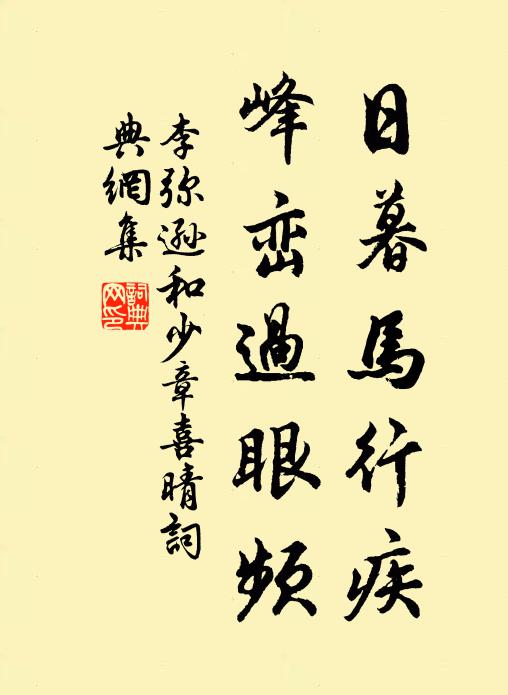 日暮馬行疾
峰峦過眼频
李弥遜和少章喜晴詞
典網集
詞典
网印